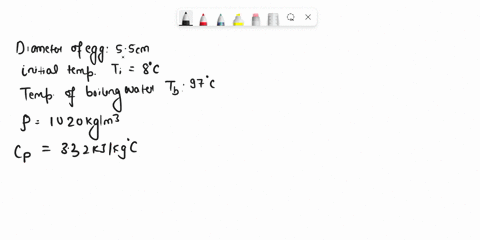 Diameter of egg: 5.5cm
initial temp. Ti = 8°C
Temp. of boiling water Tb: 97°C
ρ = 1020kg/m³
Cp = 3.32 KJ/kg°C